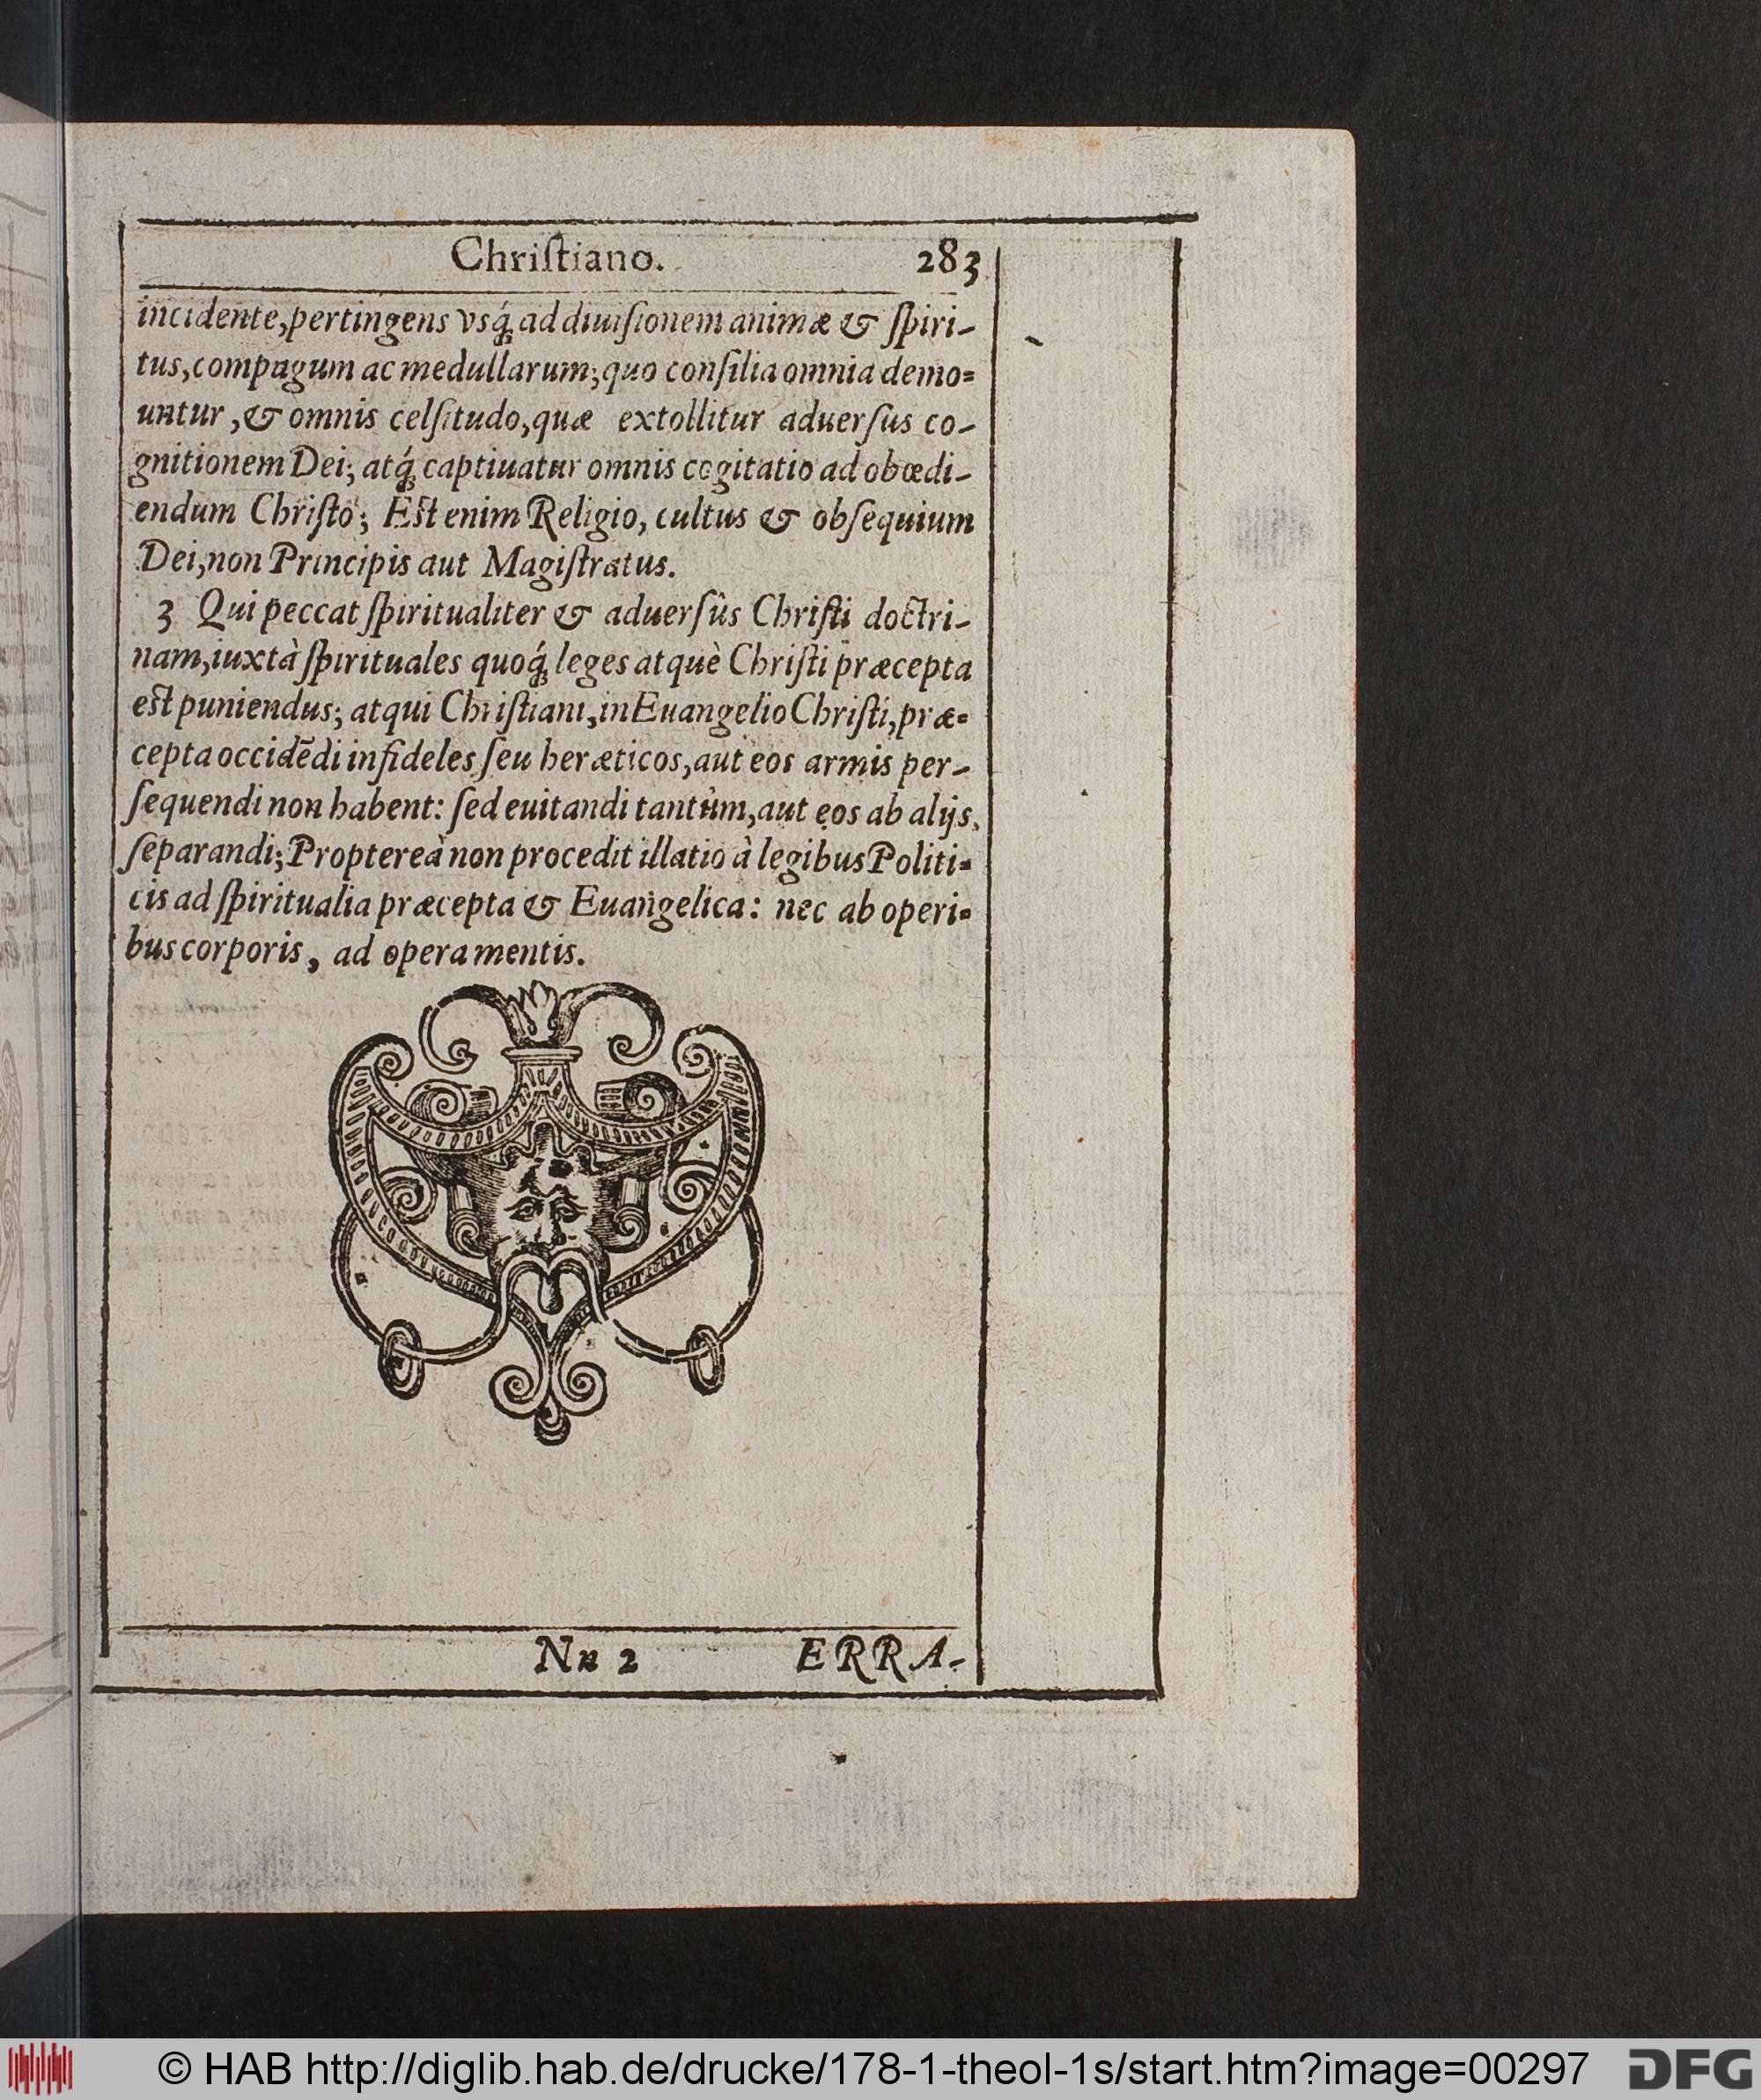 Chriſtiano. 283
incidente,pertingens vsq́; ad diuiſionem animæ & ſpiri-
tus,compagum ac medullarum;quo conſilia omnia demo=
untur ,& omnis celſitudo,quæ extollitur aduerſus co-
gnitionem Dei; atq́; captiuatur omnis cogitatio ad obœdi-
endum Chriſto; Eſt enim Religio, cultus & obſequium
Dei,non Principis aut Magiſtratus.
3 Qui peccat ſpiritualiter & aduerſùs Chriſti doctri-
nam,iuxtà ſpirituales quoq́; leges atquè Chriſti præcepta
eſt puniendus; atqui Chriſtiani,in Euangelio Chriſti,præ=
cepta occidēdi infideles ſeu heræticos,aut eos armis per-
ſequendi non habent: ſed euitandi tantùm,aut eos ab alijs
ſeparandi; Proptereà non procedit illatio à legibus Politi=
cis ad ſpiritualia præcepta & Euangelica: nec ab operi=
bus corporis, ad opera mentis.
Nn 2 ERRA-
© HAB http://diglib.hab.de/drucke/178-1-theol-1s/start.htm?image=00297 DFG